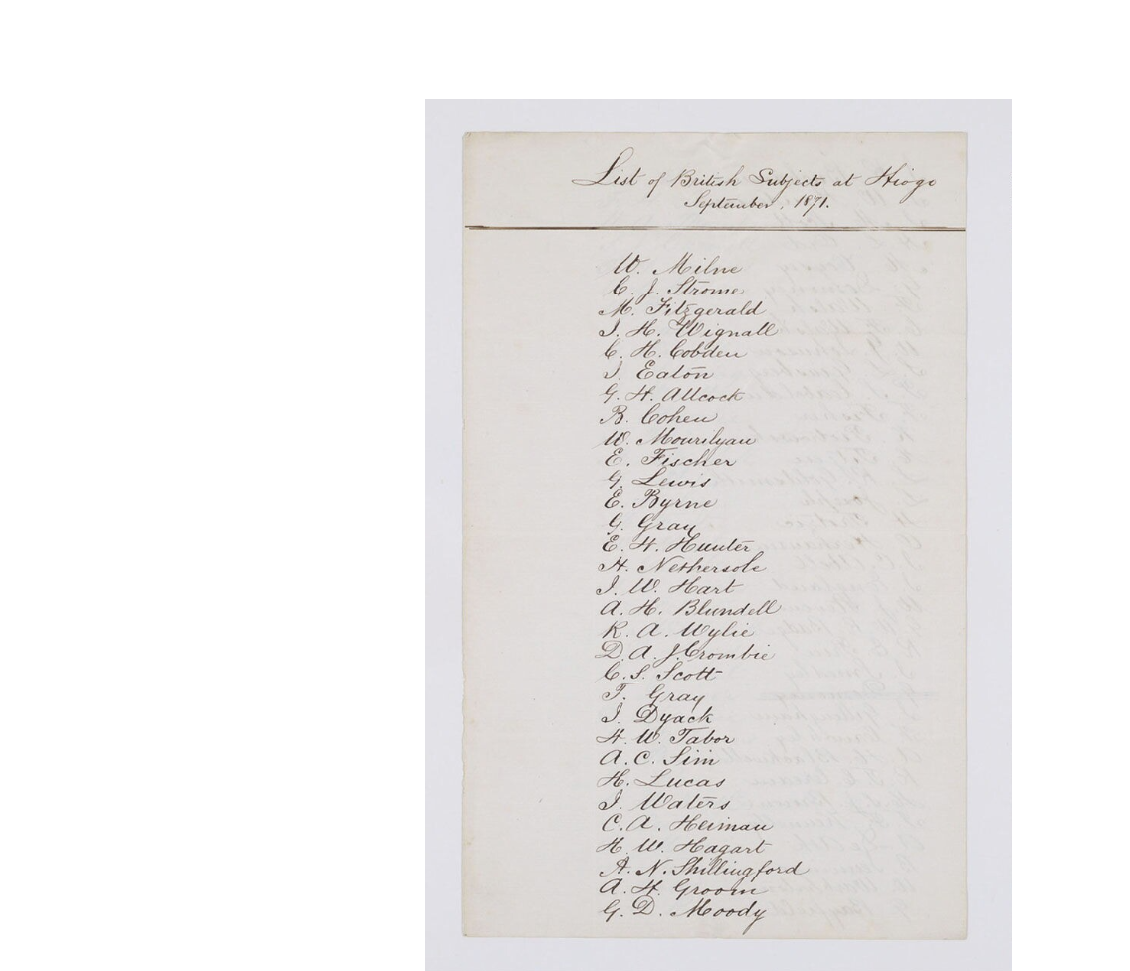 List of British Subjects at Hiogo
September, 1871.
W. Milne
C. J. Strome
M. Fitzgerald
J. H. Wignall
C. H. Cobden
J. Eaton
G. H. Allcock
B. Cohen
W. Mourilyan
E. Fischer
G. Lewis
E. Byrne
G. Gray
E. H. Hunter
H. Nethersole
J. W. Hart
A. H. Blundell
R. A. Wylie
D. A. J. Crombie
C. S. Scott
T. Gray
J. Dyack
H. W. Tabor
A. C. Sim
H. Lucas
J. Waters
C. A. Heiman
H. W. Hagart
A. N. Shillingford
A. H. Groom
G. D. Moody